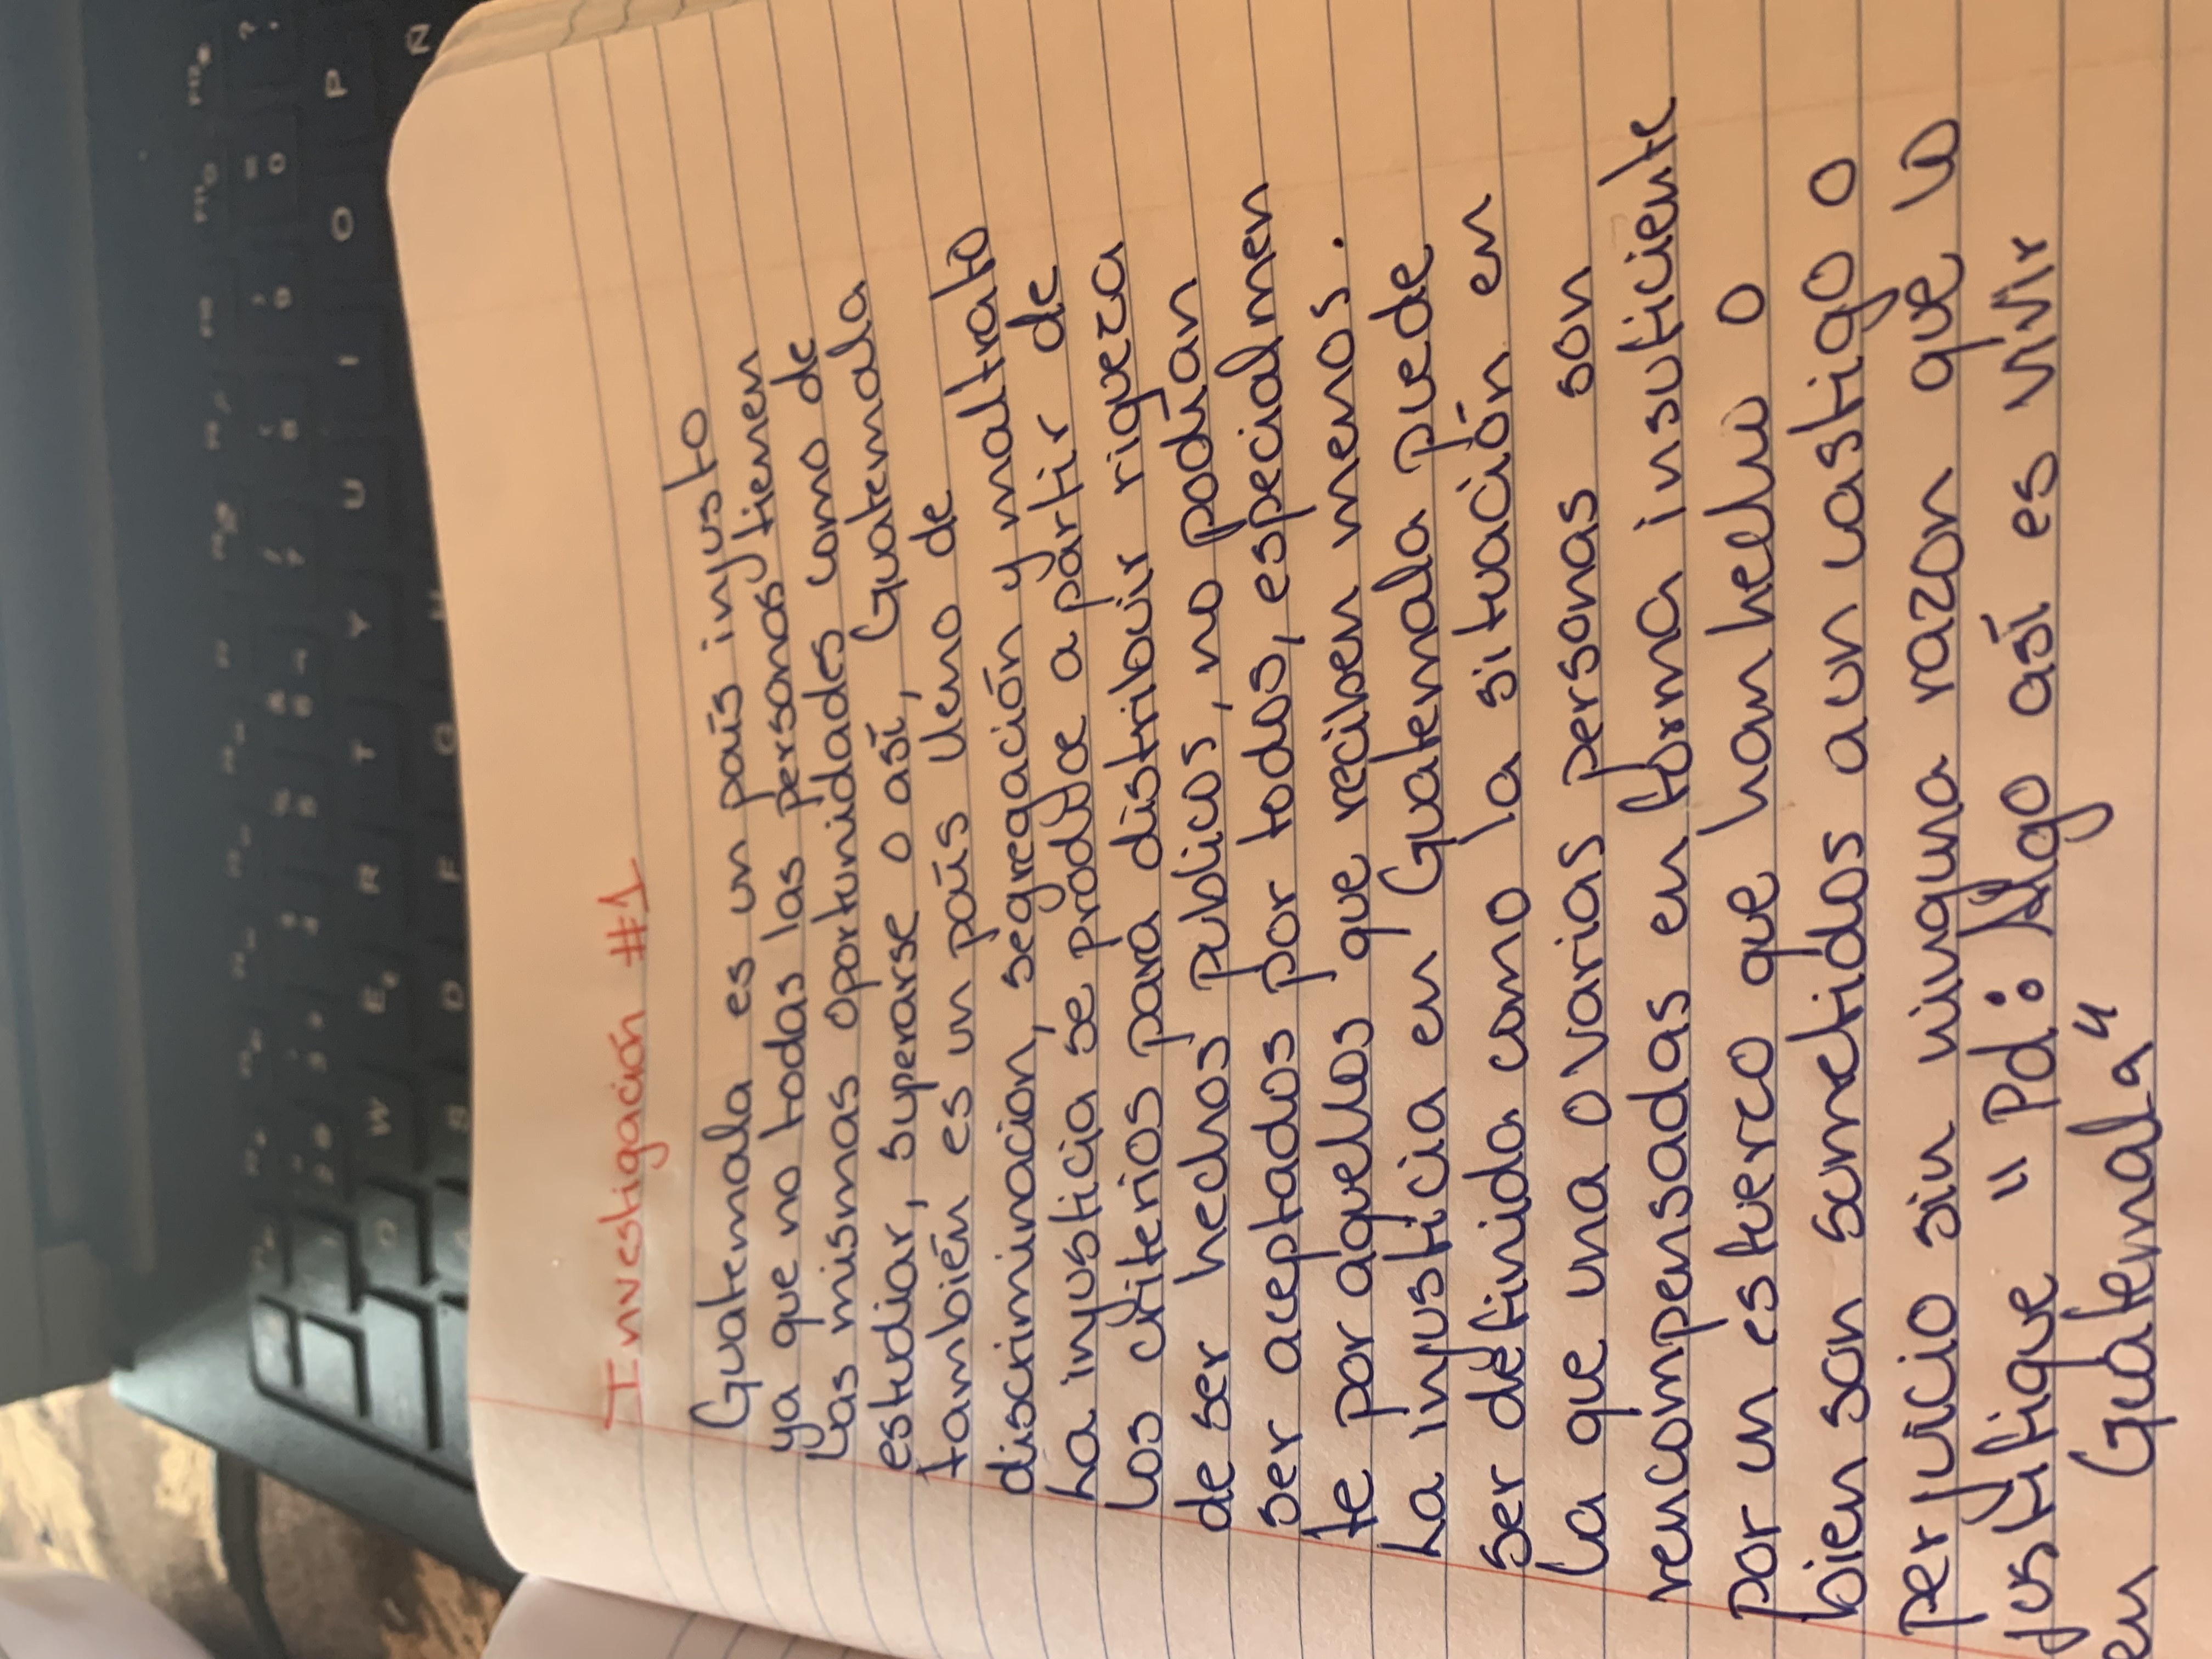 Investigación #1
Guatemala es un país injusto
ya que no todas las personas tienen
Las mismas oportunidades como de
estudiar, superarse o así, Guatemala
también es un país lleno de
discriminacion, segregación y maltrato
La injusticia se produce a partir de
Los criterios para distribuir riqueza
de ser hechos publicos, no podían
ser aceptados por todos, especialmen
te por aquellos que reciben menos.
La injusticia en Guatemala puede
ser definida como la situación en
La que una o varias personas son
rencompensadas en forma insuficiente
por un esfuerzo que han hecho o
bien son sometidos a un castigo o
perjuicio sin ninguna razon que lo
justifique "Pd: Algo así es vivir
en Guatemala"